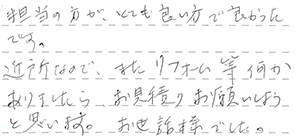 担当の方が、とても良い方で良かった
です。
近所なので、またリフォーム等何か
ありましたら、お見積りお願いしよう
と思います。 お世話様でした。